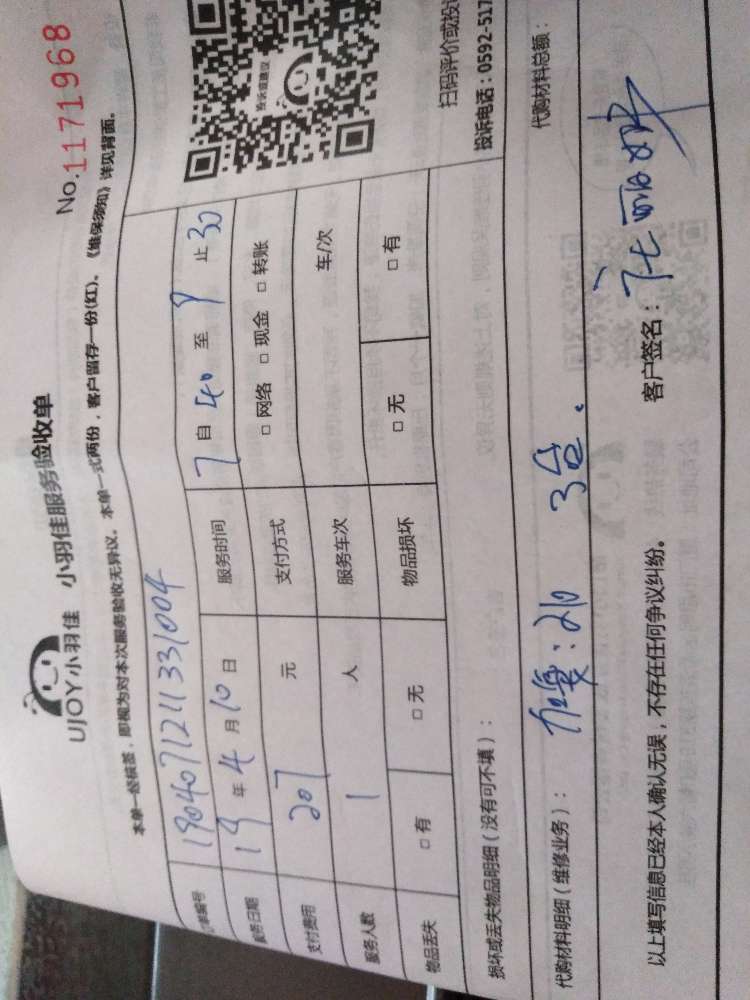 UJOY小羽佳 小羽佳服务验收单
No.1171968
本单一经核签，即视为对本次服务验收无异议。本单一式两份，客户留存一份(红)。《维保须知》详见背面。
单编号 1904071211331004
服务日期 19年4月10日 服务时间 7自40至9止30
支付费用 207元 支付方式 □网络 □现金 □转账
服务人数 1人 服务车次 车/次
物品丢失 □有 □无 物品损坏 □无 □有
投诉或建议
扫码评价或投
投诉电话：0592-517
损坏或丢失物品明细（没有可不填）：
代购材料明细（维修业务）： : 210 3台. 代购材料总额：
以上填写信息已经本人确认无误，不存在任何争议纠纷。 客户签名：